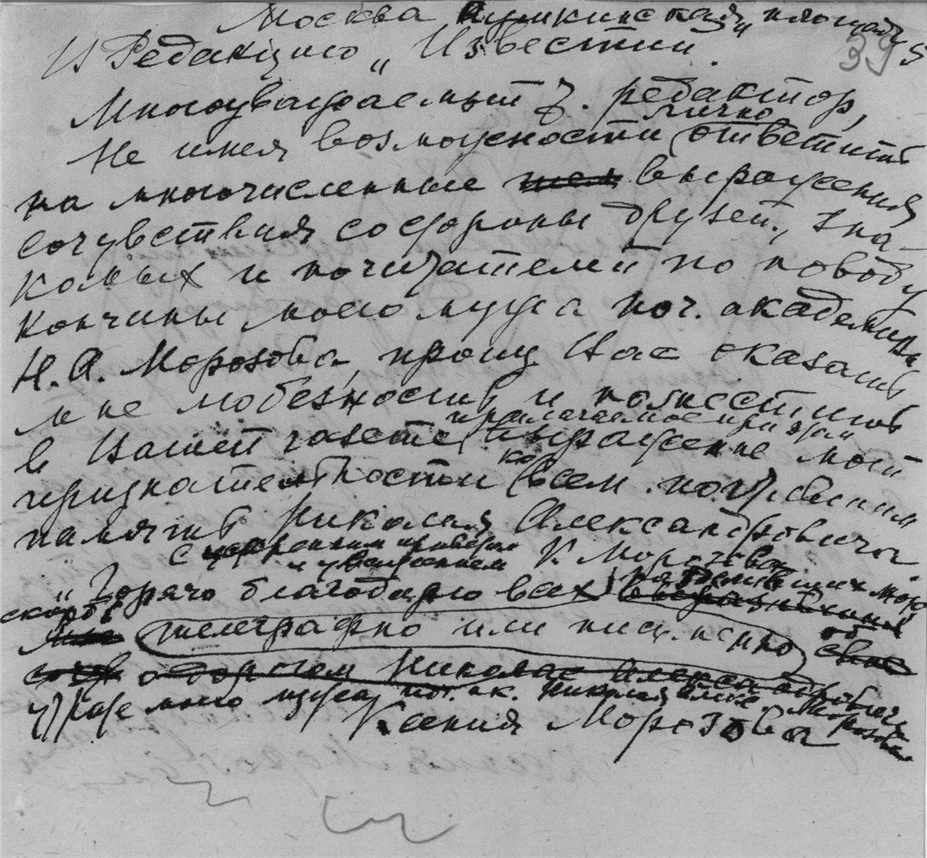 Москва Пушкинская площадь, 5
39
В Редакцию „Известий"
Многоуважаемый т. редактор,
Не имея возможности лично ответить
на многочисленные выражения
сочувствия со стороны друзей, зна-
комых и почитателей по поводу
кончины моего мужа поч. академика
Н. А. Морозова, прошу Вас оказать
мне любезность и поместить
в Вашей газете прилагаемое при этом выражение моей
признательности всем почтившим
память Николая Александровича
С искренним приветом
и уважением К. Морозова.
„Горячо благодарю всех разделивших мою
скорбь телеграфно или письменно об
утрате моего мужа поч. ак. Николая Алекс. Морозова
Ксения Морозова